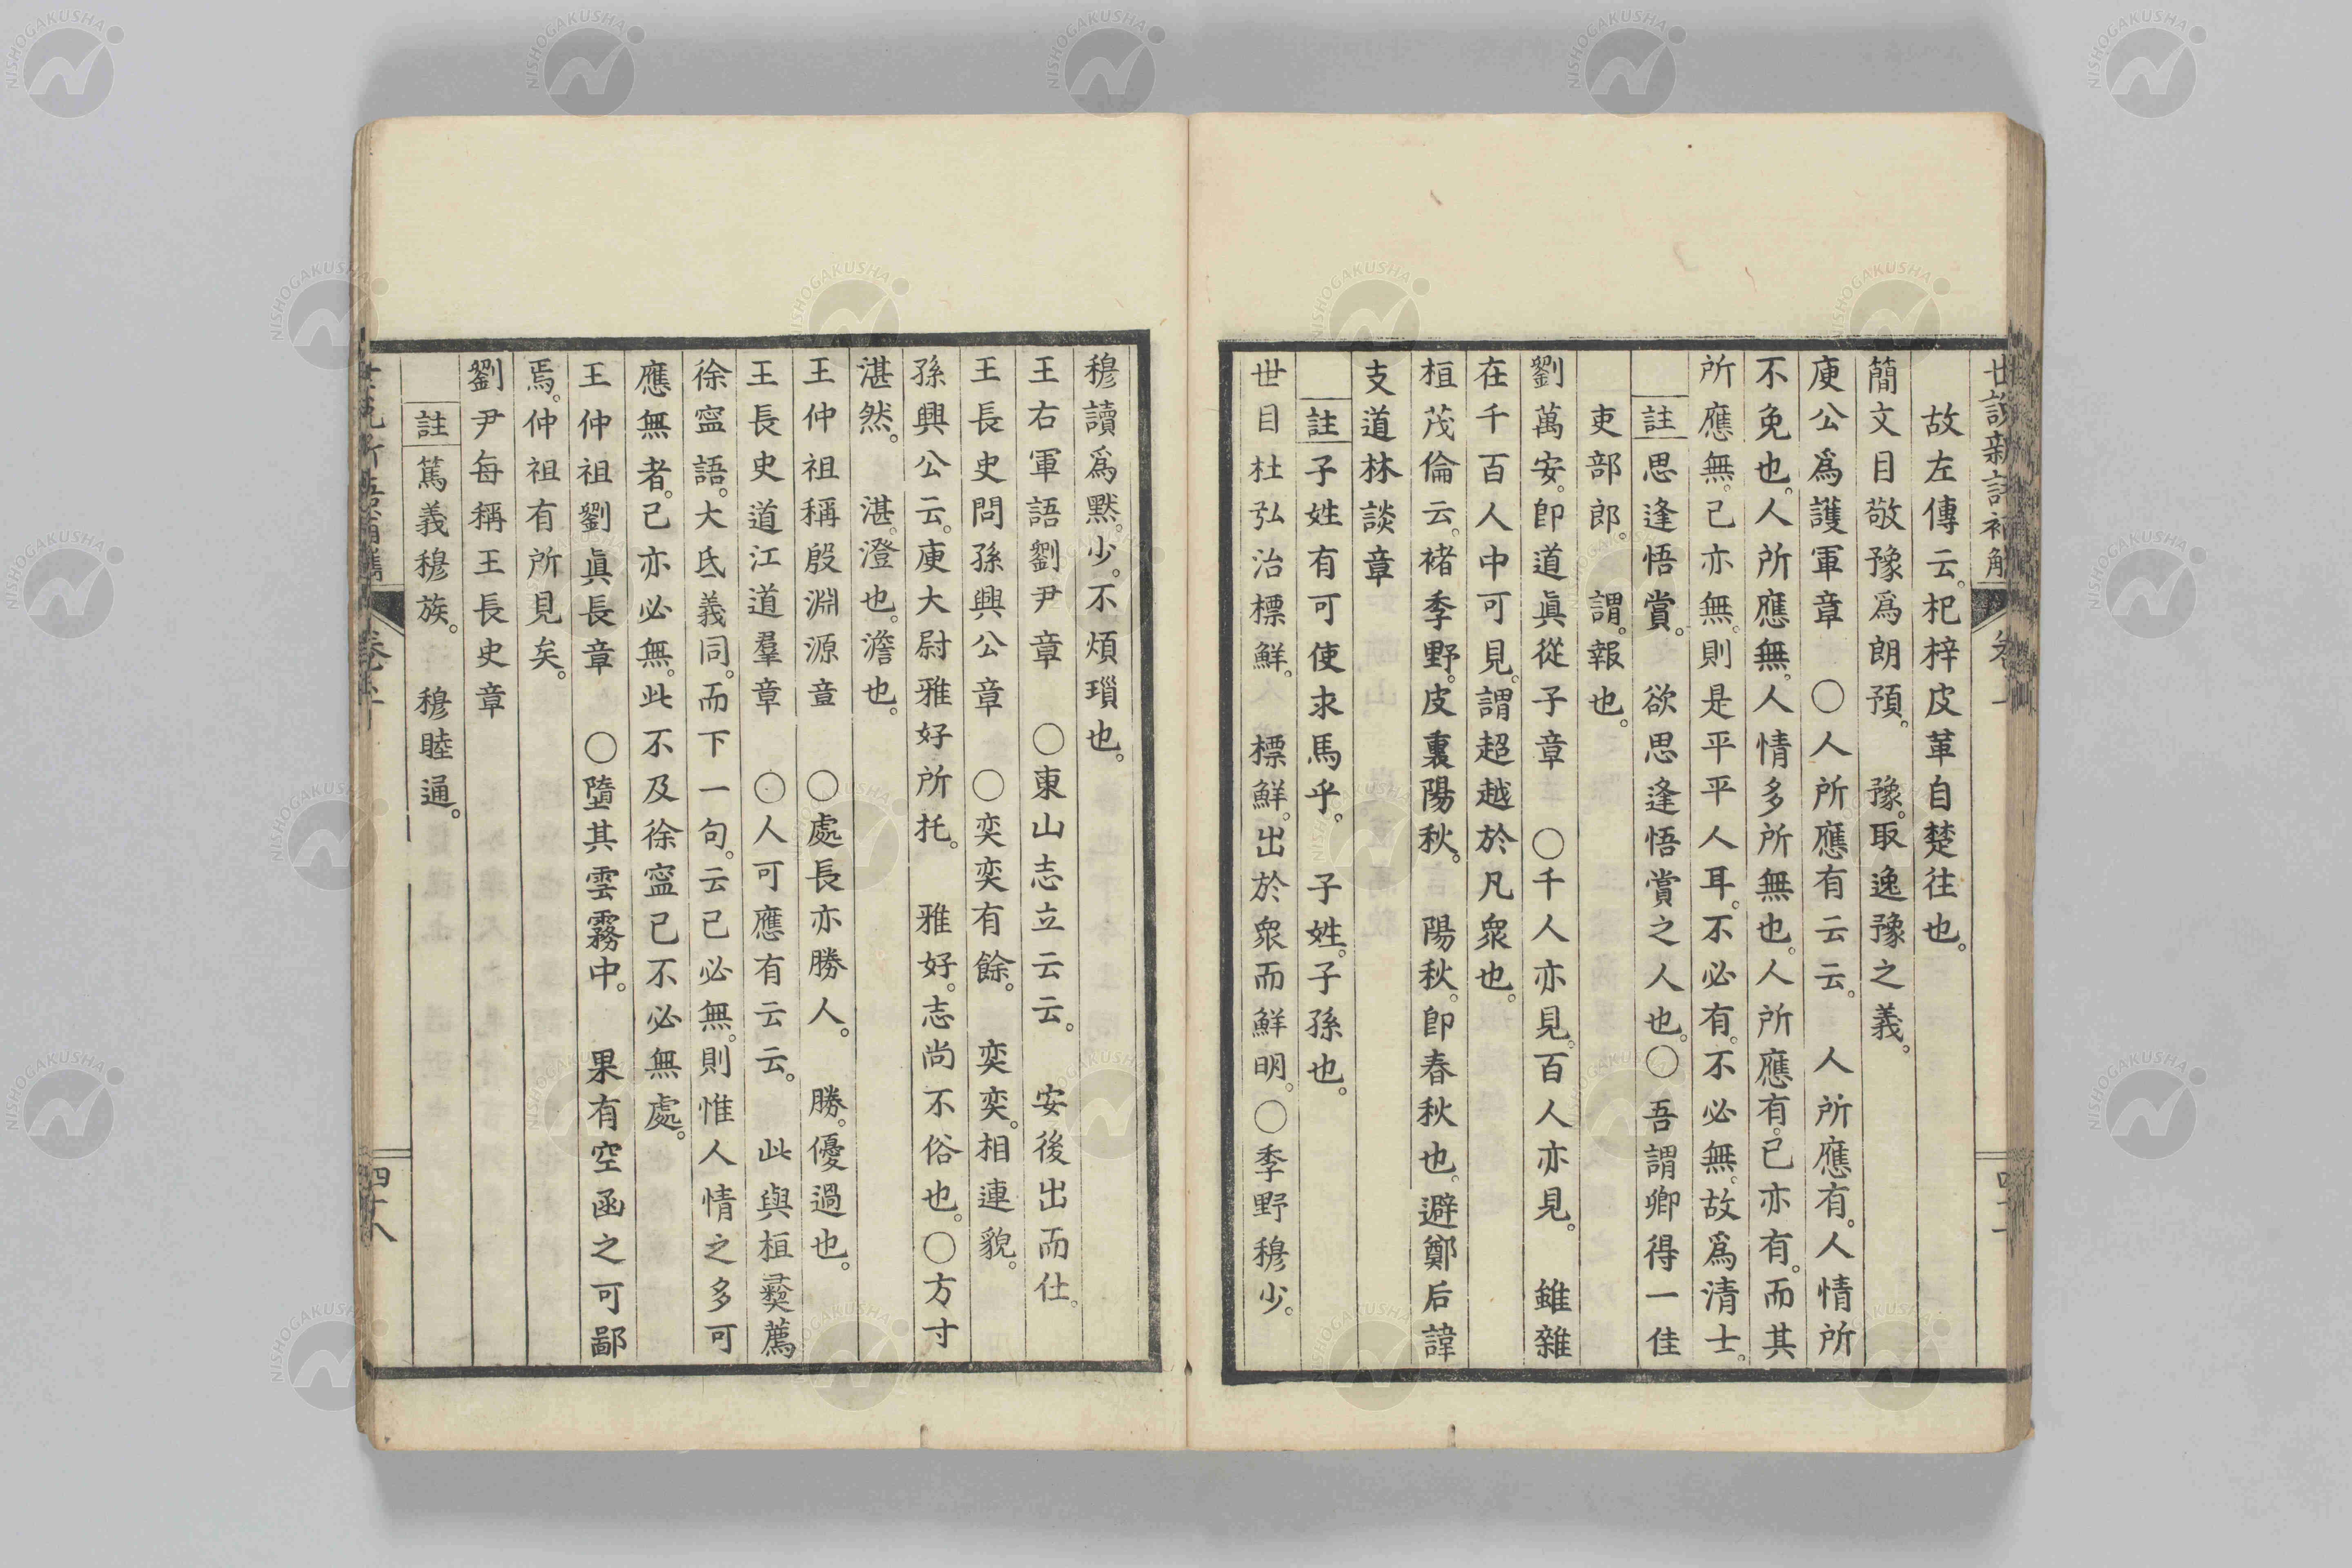 故左傳云。杞梓皮革自楚往也。
簡文目敬豫爲朗預。 豫。取逸豫之義。
庾公爲護軍章 〇人所應有云云。 人所應有。人情所
不免也。人所應無。人情多所無也。人所應有。己亦有。而其
所應無。己亦無。則是平平人耳。不必有。不必無。故爲清士。
註 思逢悟賞。 欲思逢悟賞之人也。〇吾謂卿得一佳
吏部郎。 謂。報也。
劉萬安。卽道眞從子章 〇千人亦見。百人亦見。 雖雜
在千百人中可見。謂超越於凡衆也。
桓茂倫云。褚季野。皮裏陽秋。 陽秋。卽春秋也。避鄭后諱
支道林談章
註 子姓有可使求馬乎。 子姓。子孫也。
世目杜弘治標鮮。 標鮮。出於衆而鮮明。〇季野穆少。
穆讀爲默。少。不煩瑣也。
王右軍語劉尹章 〇東山志立云云。 安後出而仕。
王長史問孫興公章 〇奕奕有餘。 奕奕。相連貌。
孫興公云。庾大尉雅好所托。 雅好。志尚不俗也。〇方寸
湛然。 湛。澄也。澹也。
王仲祖稱殷淵源章 〇處長亦勝人。 勝。優過也。
王長史道江道羣章 〇人可應有云云。 此與桓彝薦
徐寍語。大氐義同。而下一句。云己必無。則惟人情之多可
應無者。己亦必無。此不及徐寍己不必無處。
王仲祖劉眞長章 〇墮其雲霧中。 果有空函之可鄙
焉。仲祖有所見矣。
劉尹每稱王長史章
註 篤義穆族。 穆睦通。
四十八